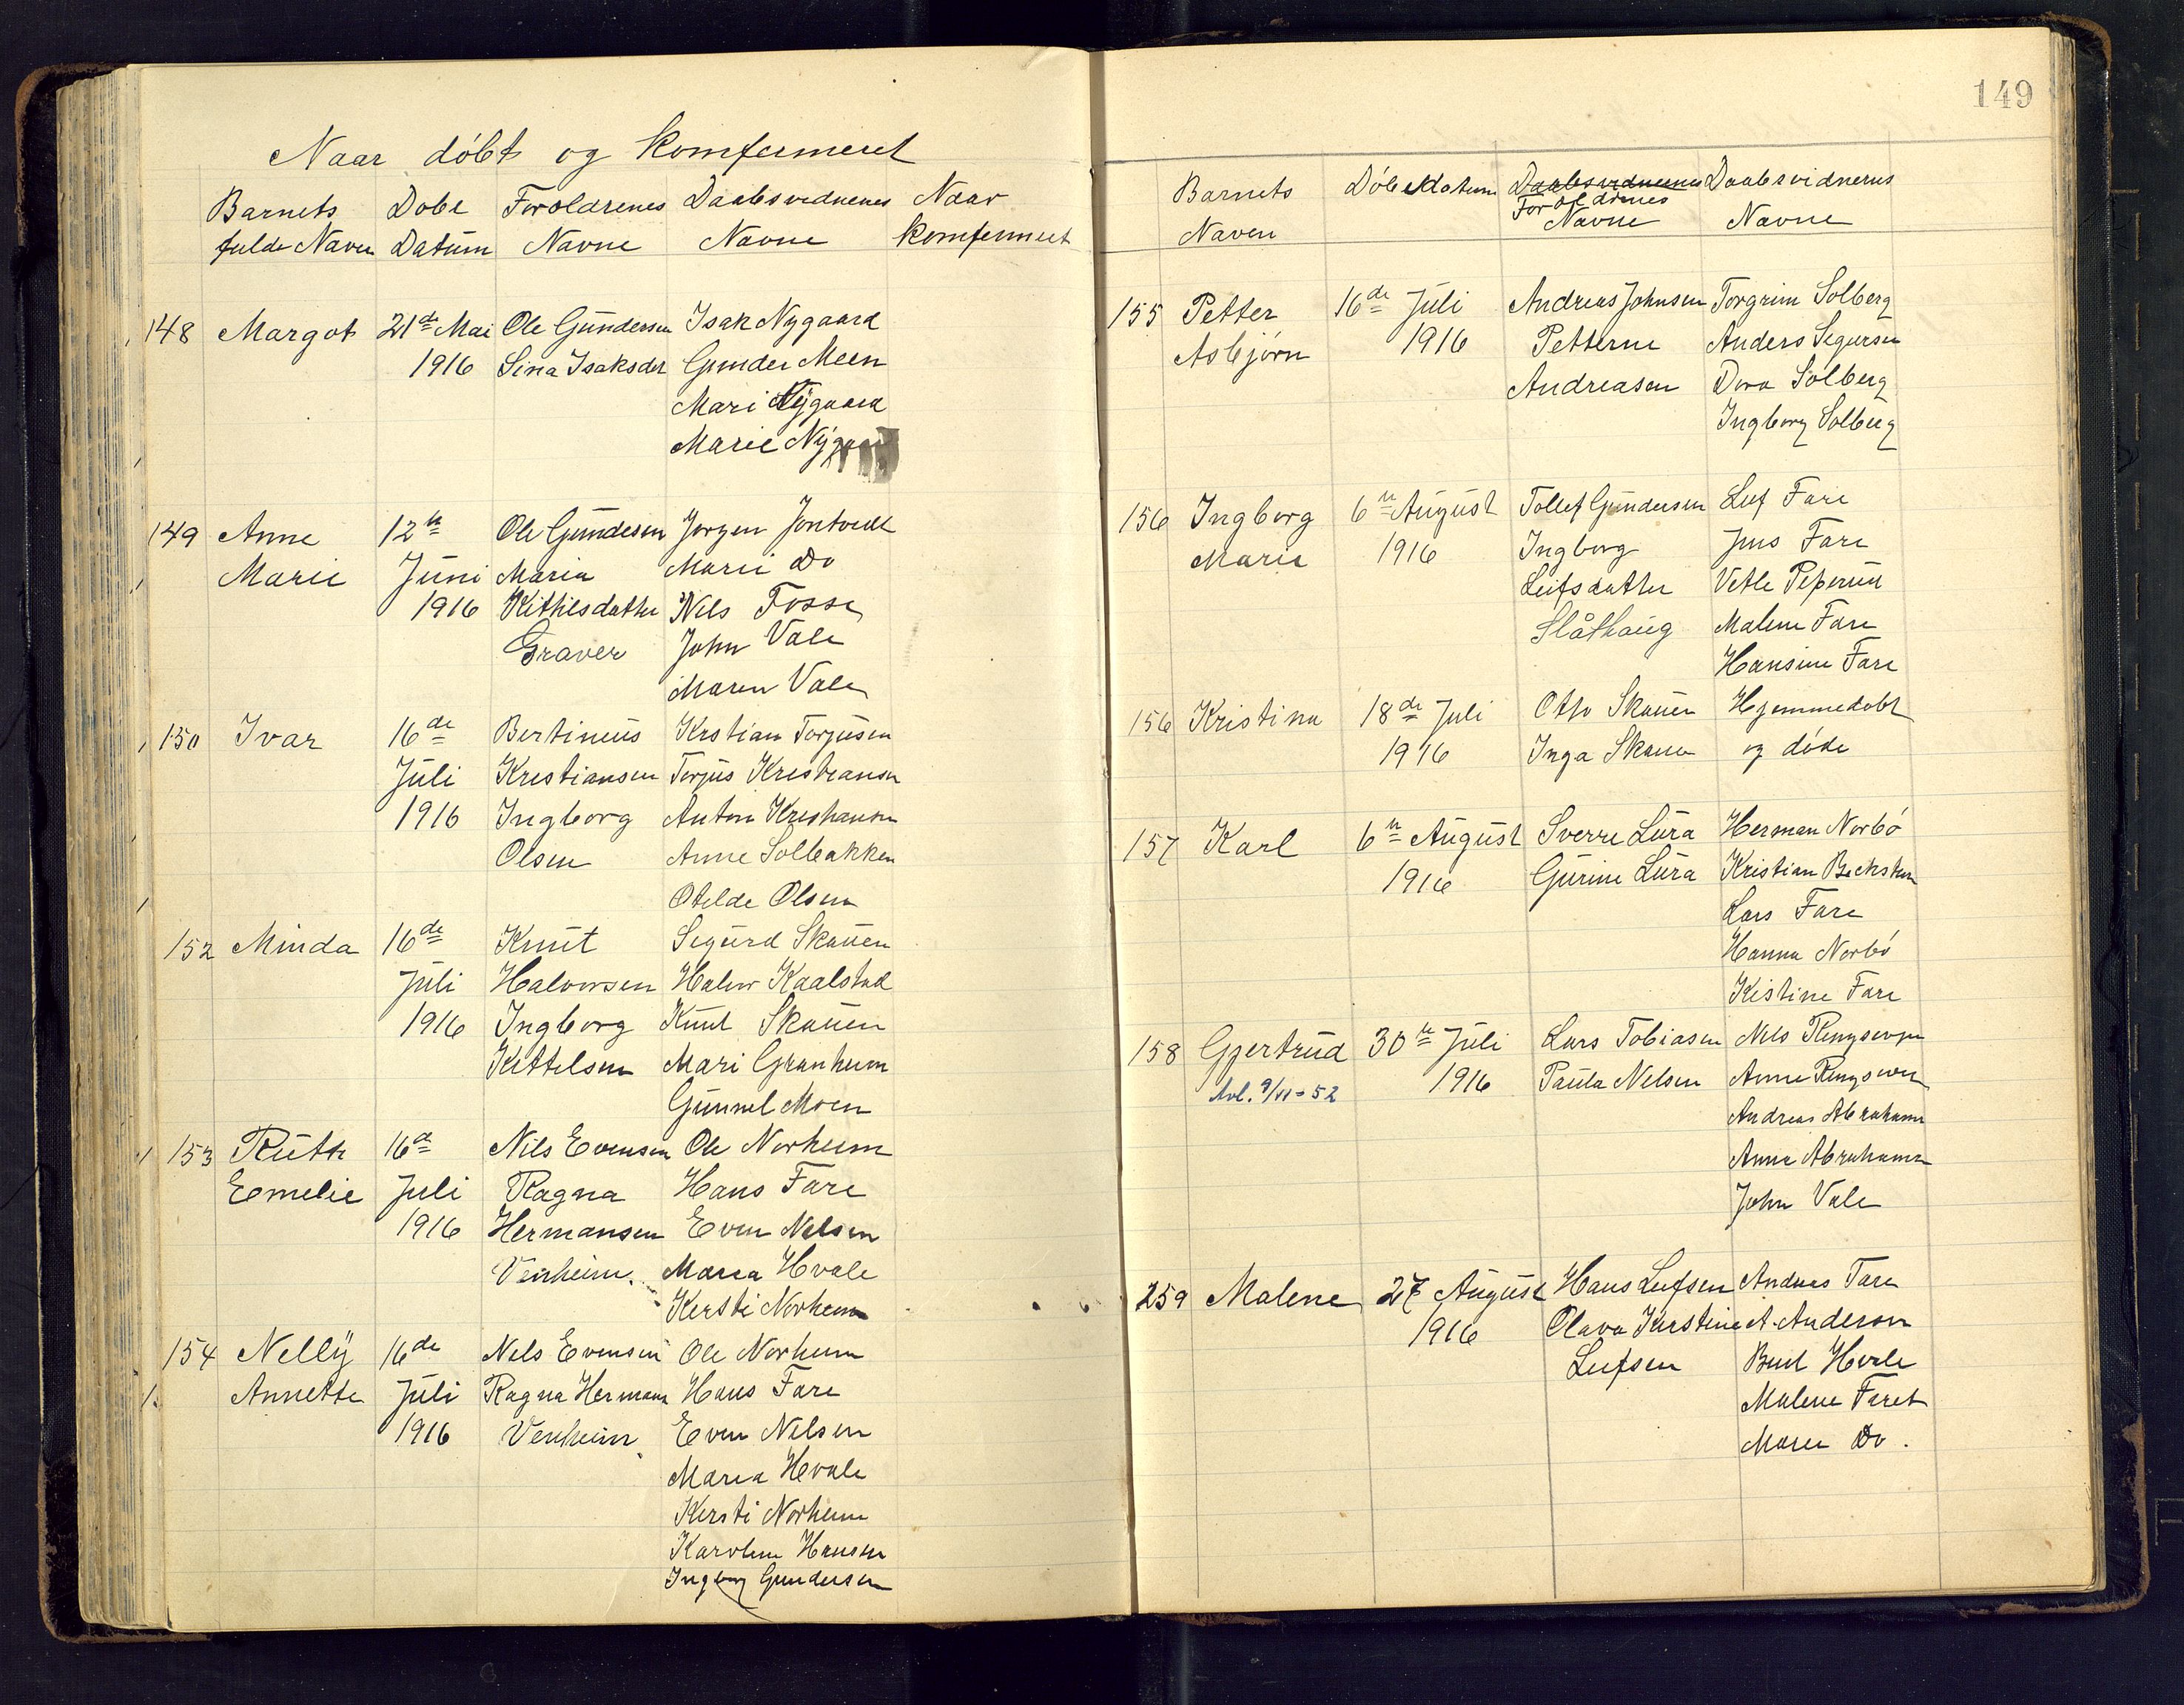 Naar döbt og Komfermeret
Barnets Dobe Foroldrenes Daabsvednenes Naar
fulde Navn Datum Navne Navne Komfermeret
148 Margot 21de Mai Ole Gundersen Isak Nygaard
1916 Sina Isaksdet Gunder Meen
Mari Nygaard
Marie Nygaard
149 Anne 12te Ole Gundesen Jorgen Jontvedt
Marie Juni Maria Marie Do
1916 Kittilsdatter Nils Fosse
Graver John Vale
Maren Vale
150 Ivar 16de Bertineus Krstian Torjusen
Juli Kristiansen Torjus Kristiansen
1916 Ingborg Anton Kristiansen
Olsen Anne Solbakken
Otelde Olsen
152 Minda 16de Knut Segurd Skauen
Juli Halvorsen Halvor Kaalstad
1916 Ingborg Knut Skauen
Kettelsen Mari Granheim
Gunnel Moen
153 Ruth 16de Nils Evensen Ole Norheim
Emelie Juli Ragna Hans Fare
1916 Hermansen Even Nelsen
Venheim. Marea Hvale
Kersti Norheim
154 Nelly 16de Nels Evensen Ole Norheim
Annette Juli Ragna Hermans Hans Fare
1916 Venheim Even Nelsen
Marea Hvale
Kersti Norheim
Karoline Hansen
Ingborg Gundersen
149
Barnets Döbe Datum Daabsvednenes Daabsvidnerns
Foroldrenes
Naven Navne Navne
155 Petter 16de Juli Andreas Johnsen Torgrim Solberg
Asbjörn 1916 Petterne Anders Segursen
Andreasen Dora Solberg
Ingborg Solberg
156 Ingborg 6te August Tollef Gundersen Leif Fare
Marie 1916 Ingborg Jens Fare
Leifsdatter Vetle
Slåthaug Malene Fare
Hansine Fare
156 Kristina 18de Juli Otto Skauen Hjemmedobt
1916 Inga Skauen og döde
157 Karl 6te August Sverre Lura Herman Norbö
1916 Gurine Lura Kristian
Lars Fare
Hanna Norbö
Kistine Fare
158 Gjertrud 30te Juli Lars Tobiasen Nels
Avl. 9/VI-52 1916 Paula Nelsen Anne
Andreas Abrahams
Anna Abrahams
John Vale
259 Malene 27 August Hans Leifsen Andreas Fare
1916 Olava Kirstine A. Anderson
Leifsen Hvale
Malene Faret
Maren Do.